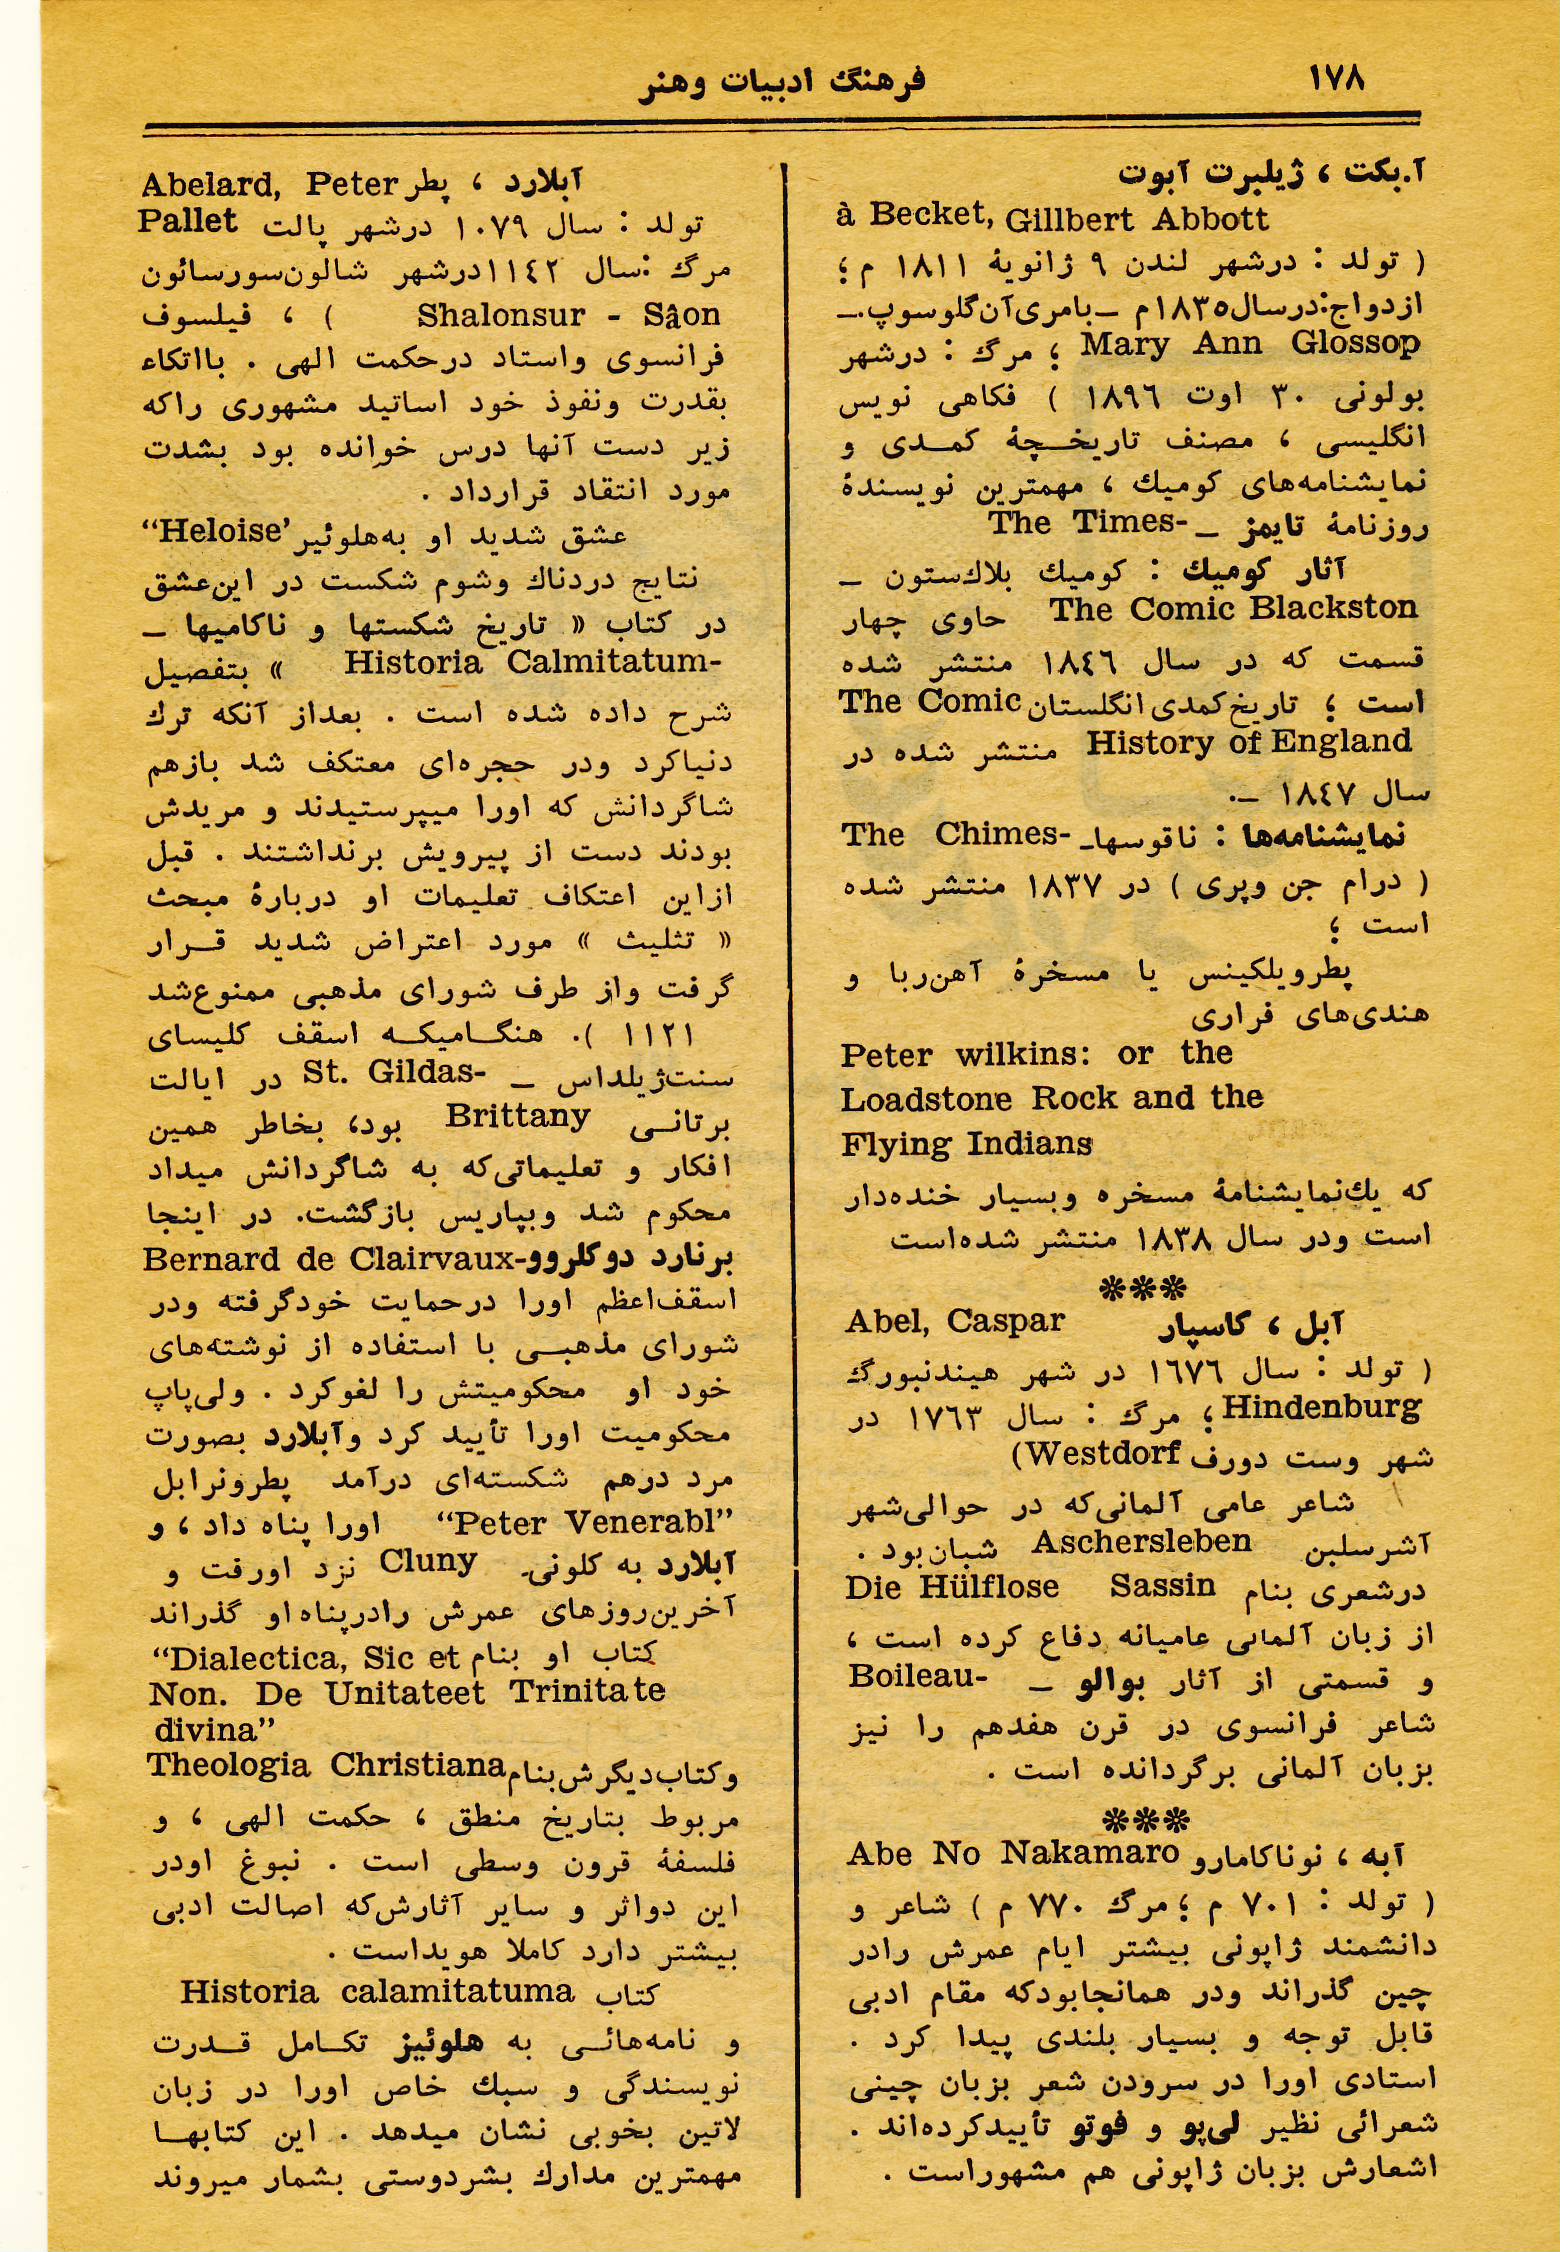 ١٧٨
فرهنگ ادبیات وهنر
آ.بکت ، ژیلبرت آبوت
à Becket, Gillbert Abbott
( تولد : درشهر لندن ٩ ژانویهٔ ١٨١١ م ؛
ازدواج:درسال١٨٣٥م ـ بامری‌آن‌گلوسوپ.ـ
Mary Ann Glossop ؛ مرگ : درشهر
بولونی ٣٠ اوت ١٨٩٦ ) فکاهی نویس
انگلیسی ، مصنف تاریخـچهٔ کمـدی و
نمایشنامه‌های کومیك ، مهمترین نویسندهٔ
روزنامهٔ تایمز ـ The Times-
آثار کومیك : کومیك بلاك‌ستون ـ
The Comic Blackston حاوی چهار
قسمت که در سال ١٨٤٦ منتشر شده
است ؛ تاریخ‌کمدی انگلستان The Comic
History of England منتشر شده در
سال ١٨٤٧ ـ.
نمایشنامه‌ها : ناقوسهاـ The Chimes-
( درام جن وپری ) در ١٨٣٧ منتشر شده
است ؛
پطرویلکینس یا مسخرهٔ آهن‌ربا و
هندی‌های فراری
Peter wilkins: or the
Loadstone Rock and the
Flying Indians
که یك‌نمایشنامهٔ مسخره وبسیار خنده‌دار
است ودر سال ١٨٣٨ منتشر شده‌است
***
آبل ، کاسپار Abel, Caspar
( تولد : سال ١٦٧٦ در شهر هیندنبورگ
Hindenburg ؛ مرگ : سال ١٧٦٣ در
شهر وست دورف Westdorf)
شاعر عامی آلمانی‌که در حوالی‌شهر
آشرسلبن Aschersleben شبان‌بود .
درشعری بنام Die Hülflose Sassin
از زبان آلمانی عامیانه دفاع کرده است ،
و قسمتی از آثار بوالو ـ Boileau-
شاعر فرانسوی در قرن هفدهم را نیز
بزبان آلمانی برگردانده است .
***
آبه ، نوناکامارو Abe No Nakamaro
( تولد : ٧٠١ م ؛ مرگ ٧٧٠ م ) شاعر و
دانشمند ژاپونی بیشتر ایام عمرش رادر
چین گذراند ودر همانجابودکه مقام ادبی
قابل توجه و بسیار بلندی پیدا کرد .
استادی اورا در سرودن شعر بزبان چینی
شعرائی نظیر لی‌پو و فوتو تأییدکرده‌اند .
اشعارش بزبان ژاپونی هم مشهوراست .
آبلارد ، پطر Abelard, Peter
تولد : سال ١٠٧٩ درشهر پالت Pallet
مرگ :سال ١١٤٢درشهر شالون‌سورسائون
Shalonsur - Sâon ) ، فیلسوف
فرانسوی واستاد درحکمت الهی . بااتکاء
بقدرت ونفوذ خود اساتید مشهوری راکه
زیر دست آنها درس خوانده بود بشدت
مورد انتقاد قرارداد .
عشق شدید او به‌هلوئیر “Heloise’
نتایج دردناك وشوم شکست در این‌عشق
در کتاب « تاریخ شکستها و ناکامیها ـ
Historia Calmitatum- » بتفصیل
شرح داده شده است . بعداز آنکه ترك
دنیاکرد ودر حجره‌ای معتکف شد بازهم
شاگردانش که اورا میپرستیدند و مریدش
بودند دست از پیرویش برنداشتند . قبل
ازاین اعتکاف تعلیمات او دربارهٔ مبحث
« تثلیث » مورد اعتراض شدید قـرار
گرفت واز طرف شورای مذهبی ممنوع‌شد
١١٢١ ). هنگـامیکـه اسقف کلیسای
سنت‌ژیلداس ـ St. Gildas- در ایالت
برتانـی Brittany بود، بخاطر همین
افکار و تعلیماتی‌که به شاگردانش میداد
محکوم شد وبپاریس بازگشت. در اینجا
برنارد دوکلروو-Bernard de Clairvaux
اسقف‌اعظم اورا درحمایت خودگرفته ودر
شورای مذهبـی با استفاده از نوشته‌های
خود او محکومیتش را لغوکرد . ولی‌پاپ
محکومیت اورا تأیید کرد وآبلارد بصورت
مرد درهم شکسته‌ای درآمد پطرونرابل
“Peter Venerabl” اورا پناه داد ، و
آبلارد به کلونی. Cluny نزد اورفت و
آخرین‌روزهای عمرش رادرپناه‌او گذراند
کتاب او بنام “Dialectica, Sic et
Non. De Unitateet Trinitate
divina”
وکتاب‌دیگرش‌بنام Theologia Christiana
مربوط بتاریخ منطق ، حکمت الهی ، و
فلسفهٔ قرون وسطی است . نبوغ اودر
این دواثر و سایر آثارش‌که اصالت ادبی
بیشتر دارد کاملا هویداست .
کتاب Historia calamitatuma
و نامه‌هائـی به هلوئیز تکـامل قـدرت
نویسندگی و سبك خاص اورا در زبان
لاتین بخوبی نشان میدهد . این کتابهـا
مهمترین مدارك بشردوستی بشمار میروند